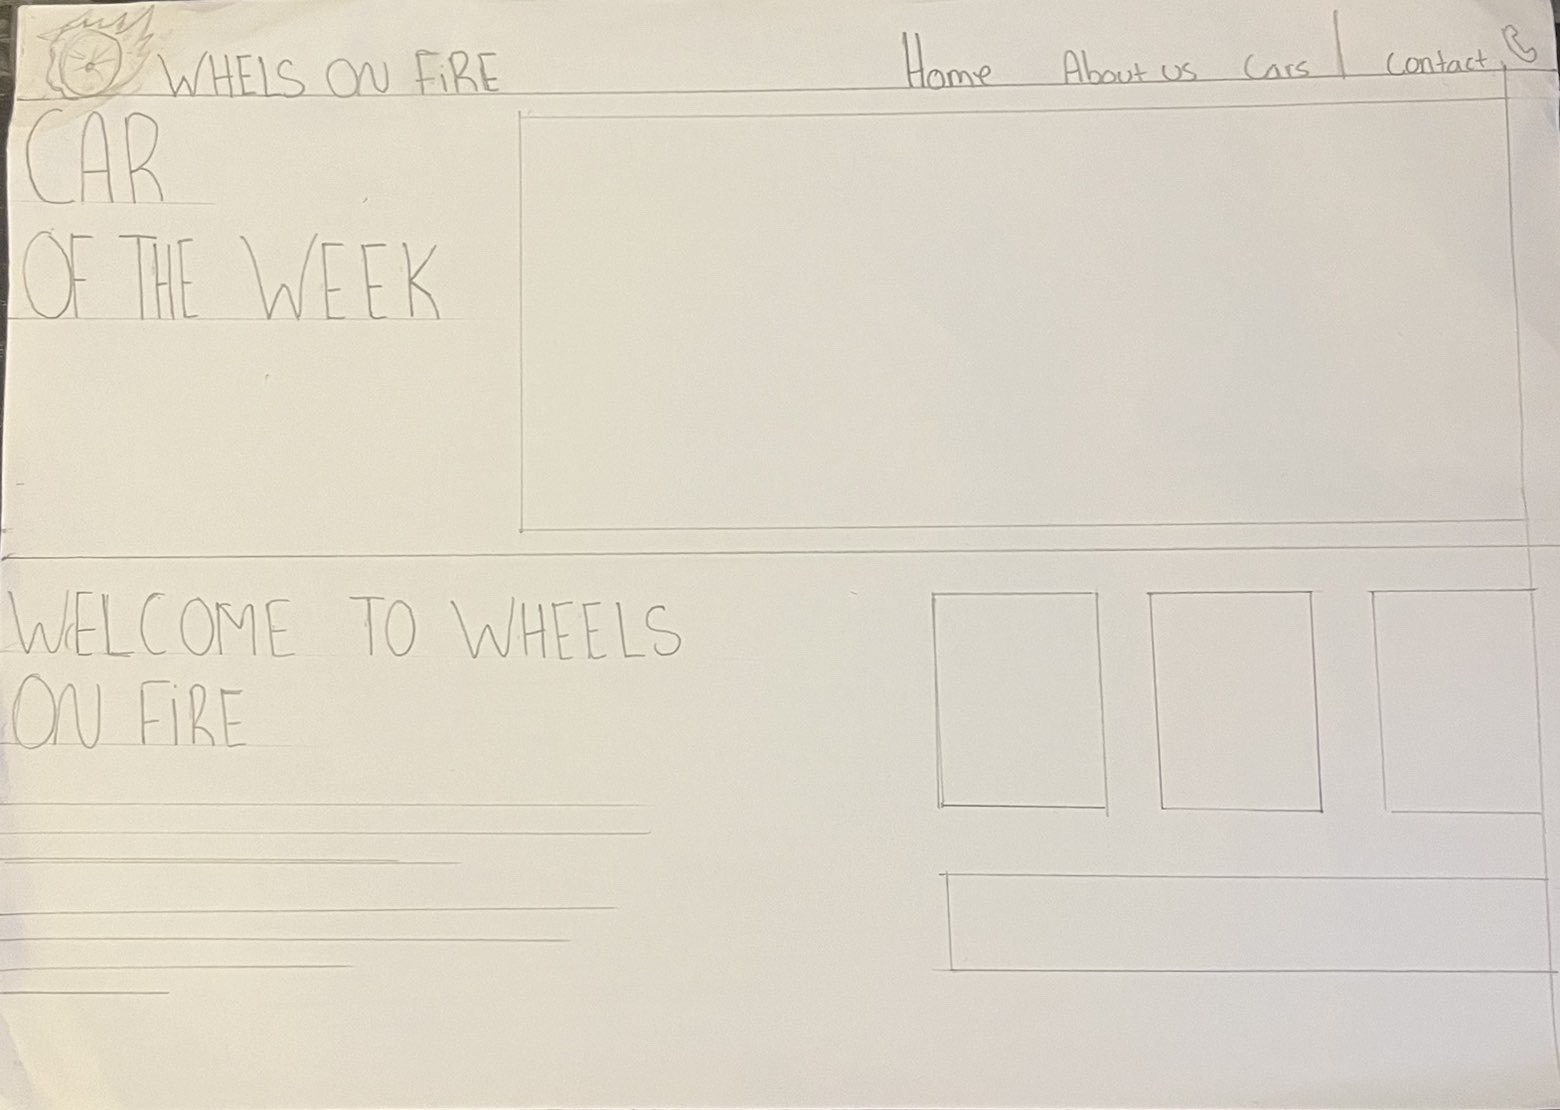 WHELS ON FiRE
Home About us Cars Contact
CAR
OF THE WEEK
WELCOME TO WHEELS
ON FiRE